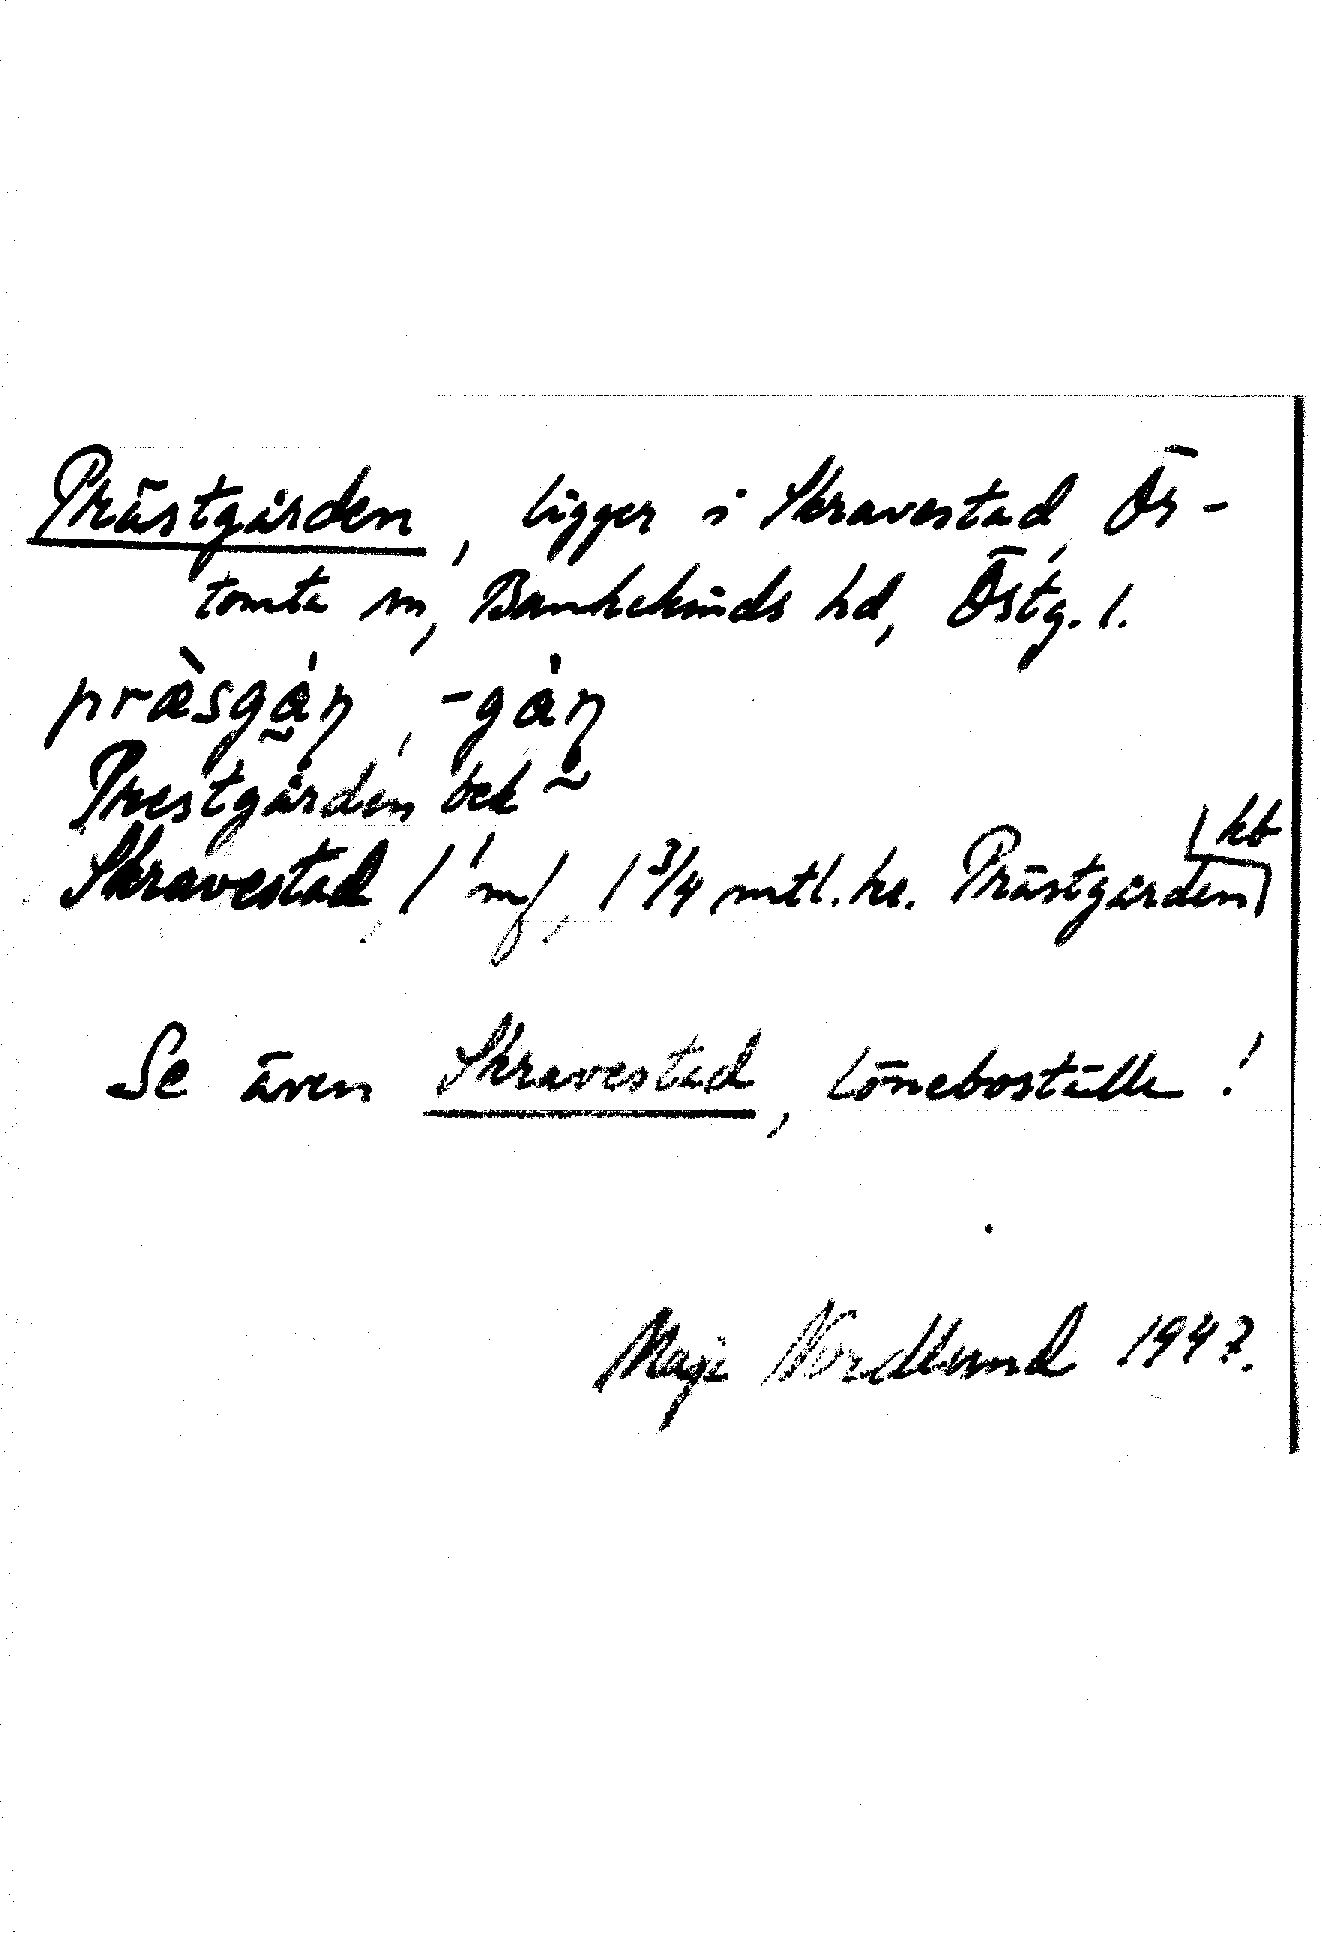 Prästgården, ligger i Skravestad, Ör-
tomta sn, Bankekinds hd, Östg. l.
præ̀sgån, -gån
Prestgården bek
Skravestad, 1 mf, 1 3/4 mtl. kr. Prästgården
kb
Se även Skravestad, löneboställe!
Maja Nordlund 1947.